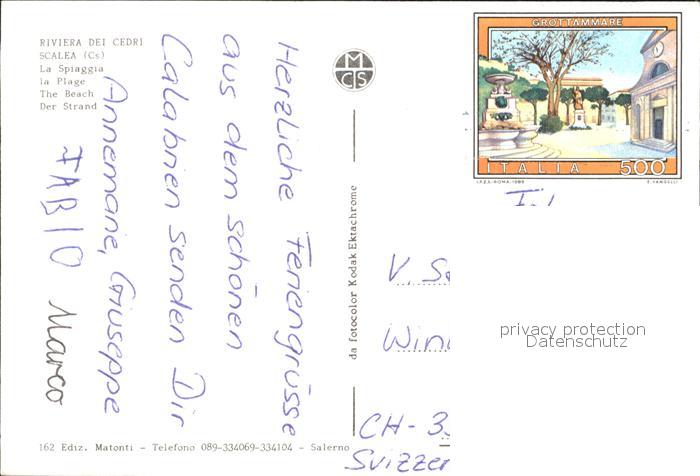 RIVIERA DEI CEDRI
SCALEA (Cs)
La Spiaggia
la Plage
The Beach
Der Strand
Herzliche Feriengrüsse
aus dem schönen
Calabrien senden Dir
Annemarie, Giuseppe
FABIO Marco
162 Ediz. Matonti - Telefono 089-334069-334104 - Salerno
da fotocolor Kodak Ektachrome
MCS
GROTTAMMARE
ITALIA 500
I.P.Z.S. ROMA - 1989 E. VANGELLI
V.
CH-3
Svizzer
privacy protection
Datenschutz